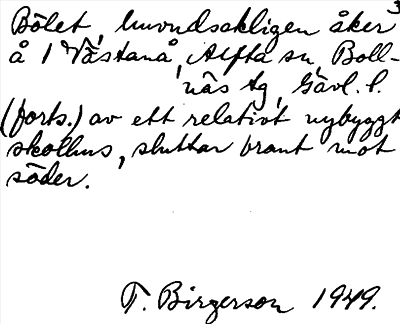 3
Bölet, huvudsakligen åker
å 1 Västanå, Alfta sn, Boll-
näs tg, Gävl. l.
(forts.) av ett relativt nybyggt
skolhus, sluttar brant mot
söder.
T. Birgerson 1949.